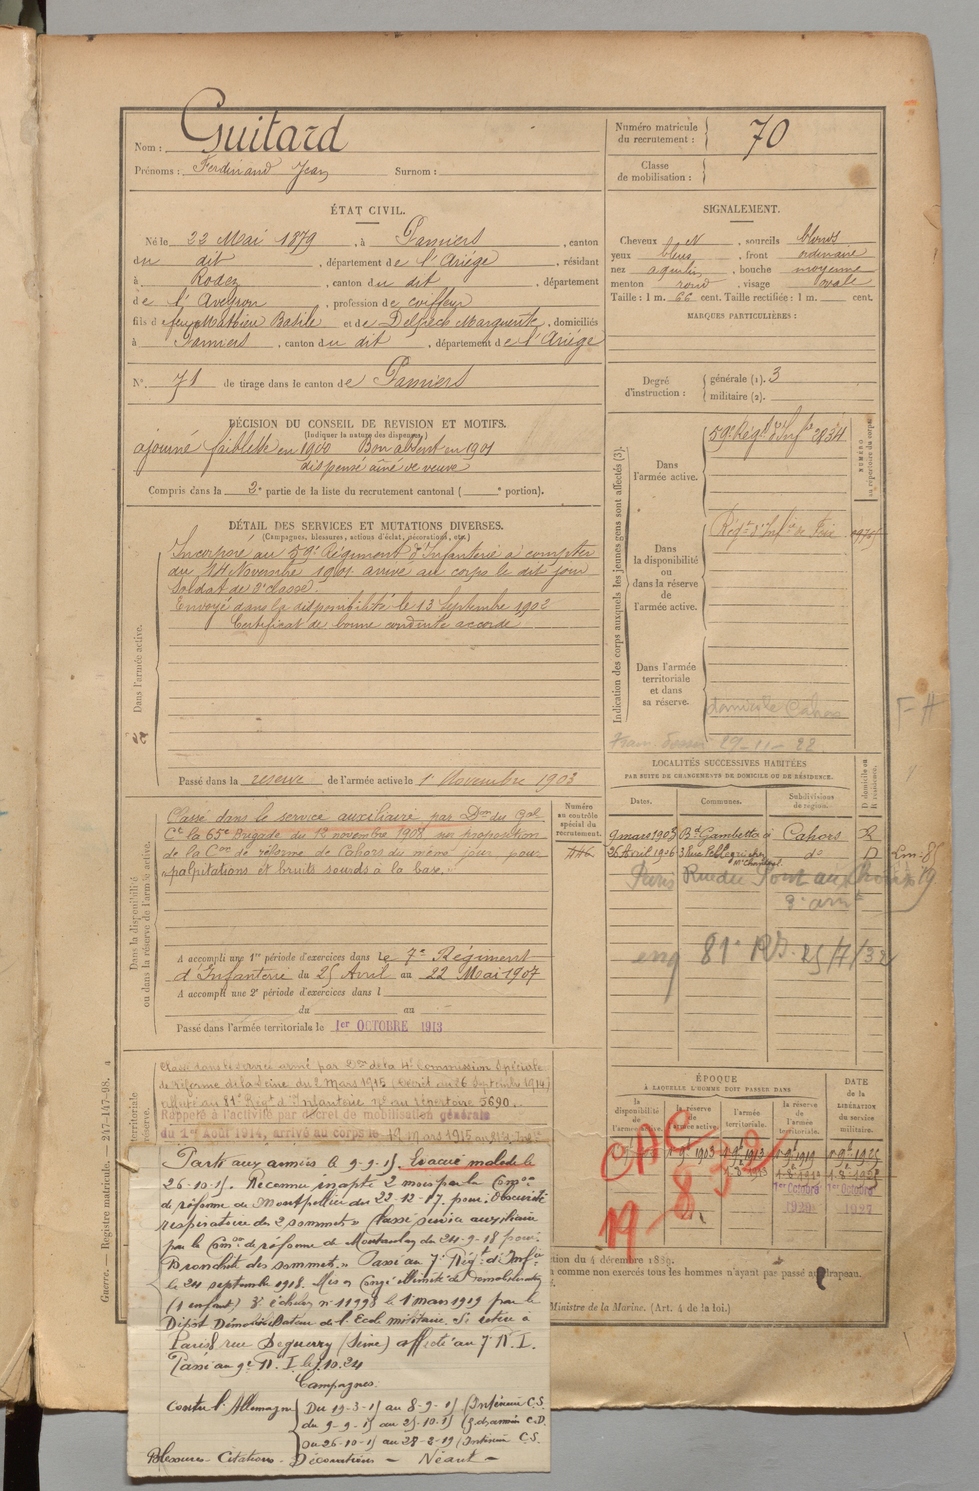 Nom : Guitard
Prénoms : Ferdinand Jean Surnom :
Numéro matricule du recrutement : 70
Classe de mobilisation :
ÉTAT CIVIL.
Né le 22 Mai 1879, à Pamiers, canton
du dit, département de l'Ariège, résidant
à Rodez, canton du dit, département
de l'Aveyron, profession de coiffeur
fils de feu Mathieu Basile et de Marguerite, domiciliés
à Pamiers, canton du dit, département de l'Ariège
N°. 71 de tirage dans le canton de Pamiers
SIGNALEMENT.
Cheveux N, sourcils blonds
yeux bleus, front ordinaire
nez aquilin, bouche moyenne
menton rond, visage ovale
Taille : 1 m. 66 cent. Taille rectifiée : 1 m. cent.
MARQUES PARTICULIÈRES :
Degré d'instruction : générale (1). 3
militaire (2).
DÉCISION DU CONSEIL DE REVISION ET MOTIFS.
(Indiquer la nature des dispenses)
ajourné faiblesse en 1900 Bon absent en 1901
dispensé aîné de veuve
Compris dans la 3e partie de la liste du recrutement cantonal ( e portion).
DÉTAIL DES SERVICES ET MUTATIONS DIVERSES.
(Campagnes, blessures, actions d'éclat, décorations, etc.)
Dans l'armée active.
Incorporé au 59e Régiment d'Infanterie à compter
du 14 Novembre 1901 arrivé au corps le dit jour
Soldat de 2e classe.
Envoyé dans la disponibilité le 13 Septembre 1902
Certificat de bonne conduite accordé
Passé dans la réserve de l'armée active le 1 Novembre 1903
Indication des corps auxquels les jeunes gens sont affectés (3).
NUMÉRO au répertoire du corps.
Dans l'armée active.
59e Régt d'Infie
Dans la disponibilité ou dans la réserve de l'armée active.
Régt d'Infie de Foix
Dans l'armée territoriale et dans sa réserve.
domicile Cahors
29-11-22
F H
Dans la disponibilité ou dans la réserve de l'armée active.
Numéro au contrôle spécial du recrutement.
Classé dans le service auxiliaire par Don du Gal
Ct la 65e Brigade du 12 novembre 1908 sur proposition
de la Con de réforme de Cahors du même jour pour
"palpitations et bruits sourds à la base."
A accompli une 1re période d'exercices dans le 7e Régiment
d'Infanterie du 25 Avril au 22 Mai 1907
A accompli une 2e période d'exercices dans l
du au
Passé dans l'armée territoriale le 1er OCTOBRE 1913
LOCALITÉS SUCCESSIVES HABITÉES
PAR SUITE DE CHANGEMENTS DE DOMICILE OU DE RÉSIDENCE.
Dates. Communes. Subdivisions de région. D domicile ou R résidence.
9 mars 1905 Bd Gambetta à Cahors R
26 Avril 1906 3 Rue do D
Paris Rue du Pont aux Choux 19
3e arrt
81e RI. 25/4/32
territoriale
réserve.
Classé dans le service armé par Don de la 4e Commission Spéciale
de réforme de la Seine du 2 Mars 1915 (Décret du 26 Septembre 1914)
affecté au 81e Régt d'Infanterie no au répertoire 5690.
Rappelé à l'activité par décret de mobilisation générale
du 1er Août 1914, arrivé au corps le 19 mars 1915
Parti aux armées le 9-9-15. Evacué malade le
26-10-15. Reconnu inapte 2 mois par la Comon
de réforme de Montpellier du 22-12-17. pour: obscurité
respiratoire des 2 sommets. Classé service auxiliaire
par la Comon de réforme de Montauban du 24-9-18 pour:
Bronchite des sommets. Passé au 7e Régt d'Infie
le 24 septembre 1918. Mis en Congé illimité de Démobilisation
(1 enfant) 3e échelon no 11993 le 1 mars 1919 par le
Dépôt Démobilisateur de l'Ecole militaire. Se retire à
Paris rue Deguerry (Seine) affecté au 7e R.I.
Passé au 9e R.I. le 1.10.24
Campagnes:
contre l'Allemagne Du 19-3-15 au 8-9-15 (Intérieur C.S.
du 9-9-15 au 25-10-15 (Z. des armées C.D.
Du 26-10-15 au 28-2-19 (Intérieur C.S.
Blessures - Citations - Décorations - Néant -
ÉPOQUE
À LAQUELLE L'HOMME DOIT PASSER DANS
la disponibilité de l'armée active. la réserve de l'armée active. l'armée territoriale. la réserve de l'armée territoriale.
DATE de la LIBÉRATION du service militaire.
1er Octobre 1er Octobre
1927
CAC
832
19
tion du 4 décembre 1889.
comme non exercés tous les hommes n'ayant pas passé au drapeau.
Ministre de la Marine. (Art. 4 de la loi.)
Guerre. — Registre matricule. — 247-147-98.